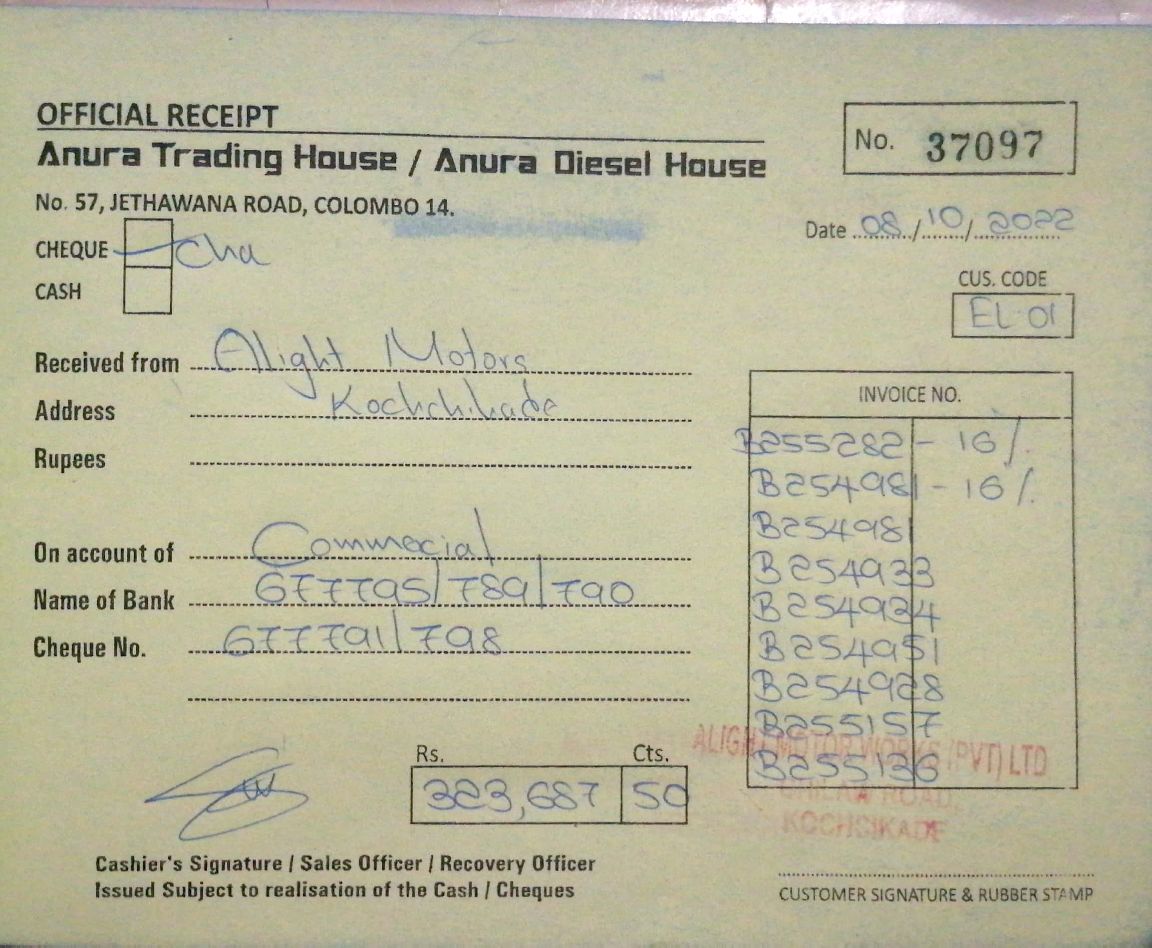 OFFICIAL RECEIPT
Anura Trading House / Anura Diesel House
No. 57, JETHAWANA ROAD, COLOMBO 14.
No. 37097
Date 08/10/2022
CHEQUE
CASH
CUS. CODE
EL 01
Received from Alight Motors
Address Kochchikade
Rupees
On account of Commecial
Name of Bank 677795/789/790
Cheque No. 677791/798
INVOICE NO.
B255282 - 16%
B254981 - 16%
B254981
B254933
B254934
B254951
B254928
B255157
B255136
ALIGHT MOTOR WORKS (PVT) LTD
ROAD,
KOCHCIKADE
Rs. Cts.
323,687 50
Cashier's Signature / Sales Officer / Recovery Officer
Issued Subject to realisation of the Cash / Cheques
CUSTOMER SIGNATURE & RUBBER STAMP